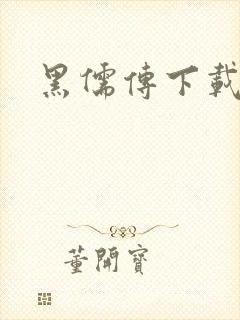 黑儒傳下載
董開寶